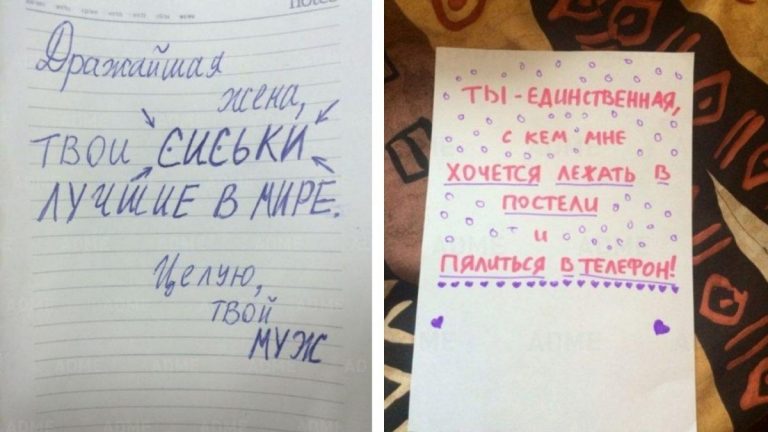 notes
Дражайшая
жена,
ТВОИ СИСЬКИ
ЛУЧШИЕ В МИРЕ.
Целую,
ТВОЙ
МУЖ
ТЫ - ЕДИНСТВЕННАЯ,
С КЕМ МНЕ
ХОЧЕТСЯ ЛЕЖАТЬ В
ПОСТЕЛИ
И
ПЯЛИТЬСЯ В ТЕЛЕФОН!
ADME